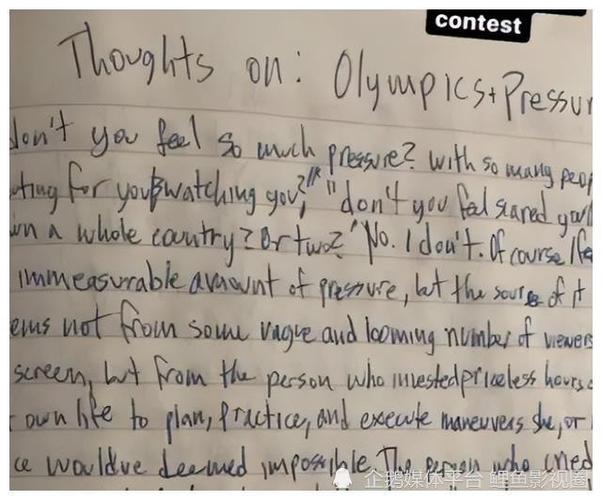 contest
Thoughts on: Olympics + Pressur
don't you feel so much pressure? With so many peop
ting for you & watching you?" "don't you feel scared you'll
wn a whole country? Or two?" No. I don't. Of course I fe
immeasurable amount of pressure, but the source of it
ems not from some vague and looming number of viewers
screen, but from the person who invested priceless hours
own life to plan, practice, and execute maneuvers she, or
ce would've deemed impossible. The person who
企鹅媒体平台 鲤鱼影视圈